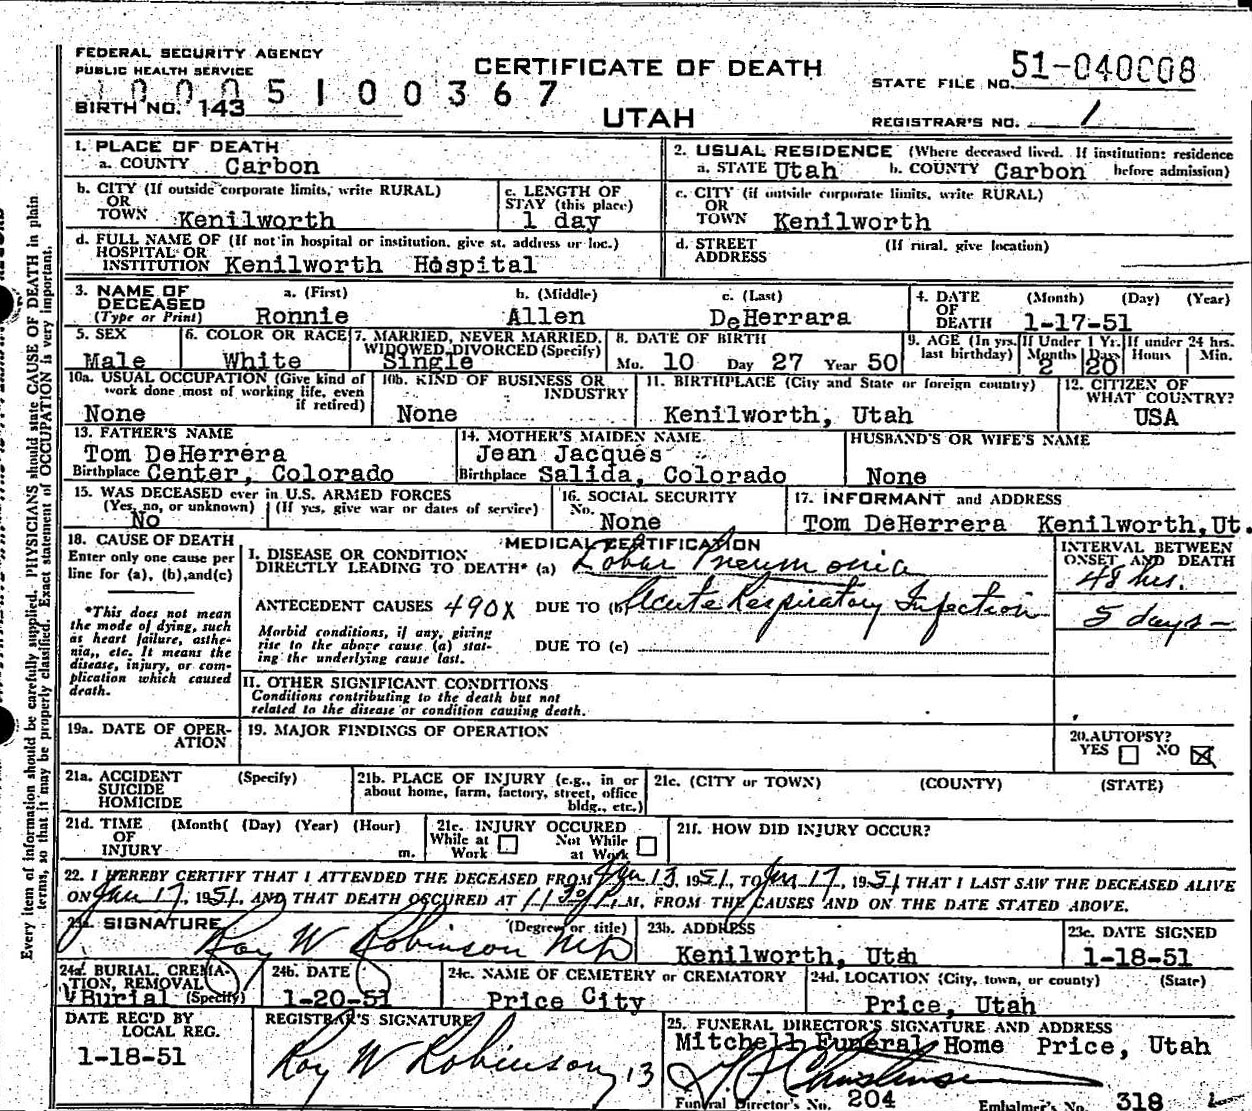 FEDERAL SECURITY AGENCY
PUBLIC HEALTH SERVICE
CERTIFICATE OF DEATH
STATE FILE NO. 51-040008
10005100367
BIRTH NO. 143
UTAH
REGISTRAR'S NO. 1
1. PLACE OF DEATH
a. COUNTY Carbon
2. USUAL RESIDENCE (Where deceased lived. If institution: residence before admission)
a. STATE Utah b. COUNTY Carbon
b. CITY (If outside corporate limits, write RURAL)
OR
TOWN Kenilworth
c. LENGTH OF
STAY (this place)
1 day
c. CITY (if outside corporate limits, write RURAL)
OR
TOWN Kenilworth
d. FULL NAME OF (If not in hospital or institution, give st. address or loc.)
HOSPITAL OR
INSTITUTION Kenilworth Hospital
d. STREET (If rural, give location)
ADDRESS
3. NAME OF
DECEASED
(Type or Print)
a. (First)
Ronnie
b. (Middle)
Allen
c. (Last)
DeHerrara
4. DATE (Month) (Day) (Year)
OF
DEATH 1-17-51
5. SEX
Male
6. COLOR OR RACE
White
7. MARRIED, NEVER MARRIED,
WIDOWED, DIVORCED (Specify)
Single
8. DATE OF BIRTH
Mo. 10 Day 27 Year 50
9. AGE (In yrs. last birthday)
If Under 1 Yr.
Months Days
2 20
If under 24 hrs.
Hours Min.
10a. USUAL OCCUPATION (Give kind of
work done most of working life, even
if retired)
None
10b. KIND OF BUSINESS OR
INDUSTRY
None
11. BIRTHPLACE (City and State or foreign country)
Kenilworth, Utah
12. CITIZEN OF
WHAT COUNTRY?
USA
13. FATHER'S NAME
Tom DeHerrera
Birthplace Center, Colorado
14. MOTHER'S MAIDEN NAME
Jean Jacques
Birthplace Salida, Colorado
HUSBAND'S OR WIFE'S NAME
None
15. WAS DECEASED ever in U.S. ARMED FORCES
(Yes, no, or unknown) (If yes, give war or dates of service)
No
16. SOCIAL SECURITY
No.
None
17. INFORMANT and ADDRESS
Tom DeHerrera Kenilworth, Ut.
18. CAUSE OF DEATH
Enter only one cause per
line for (a), (b), and (c)
*This does not mean
the mode of dying, such
as heart failure, asthe-
nia, etc. It means the
disease, injury, or com-
plication which caused
death.
MEDICAL CERTIFICATION
I. DISEASE OR CONDITION
DIRECTLY LEADING TO DEATH* (a) Lobar Pneumonia
ANTECEDENT CAUSES 490X DUE TO (b) Acute Respiratory Infection
Morbid conditions, if any, giving
rise to the above cause (a) stat-
ing the underlying cause last.
DUE TO (c)
INTERVAL BETWEEN
ONSET AND DEATH
48 hrs.
5 days-
II. OTHER SIGNIFICANT CONDITIONS
Conditions contributing to the death but not
related to the disease or condition causing death.
19a. DATE OF OPER-
ATION
19. MAJOR FINDINGS OF OPERATION
20. AUTOPSY?
YES NO
21a. ACCIDENT (Specify)
SUICIDE
HOMICIDE
21b. PLACE OF INJURY (e.g., in or
about home, farm, factory, street, office
bldg., etc.)
21c. (CITY or TOWN) (COUNTY) (STATE)
21d. TIME (Month( (Day) (Year) (Hour)
OF
INJURY m.
21e. INJURY OCCURED
While at Work
Not While at Work
21f. HOW DID INJURY OCCUR?
22. I HEREBY CERTIFY THAT I ATTENDED THE DECEASED FROM Jan 13, 1951, TO Jan 17, 1951 THAT I LAST SAW THE DECEASED ALIVE
ON Jan 17, 1951, AND THAT DEATH OCCURED AT 1130 P.M, FROM THE CAUSES AND ON THE DATE STATED ABOVE.
23a. SIGNATURE (Degree or title)
Roy W Robinson MD
23b. ADDRESS
Kenilworth, Utah
23c. DATE SIGNED
1-18-51
24a. BURIAL, CREMA-
TION, REMOVAL
Burial (Specify)
24b. DATE
1-20-51
24c. NAME OF CEMETERY or CREMATORY
Price City
24d. LOCATION (City, town, or county) (State)
Price, Utah
DATE REC'D BY
LOCAL REG.
1-18-51
REGISTRAR'S SIGNATURE
Roy W Robinson 13
25. FUNERAL DIRECTOR'S SIGNATURE AND ADDRESS
Mitchell Funeral Home Price, Utah
Funeral Director's No. 204 Embalmer's No. 318
Every item of information should be carefully supplied. PHYSICIANS should state CAUSE OF DEATH in plain
terms, so that it may be properly classified. Exact statement of OCCUPATION is very important.